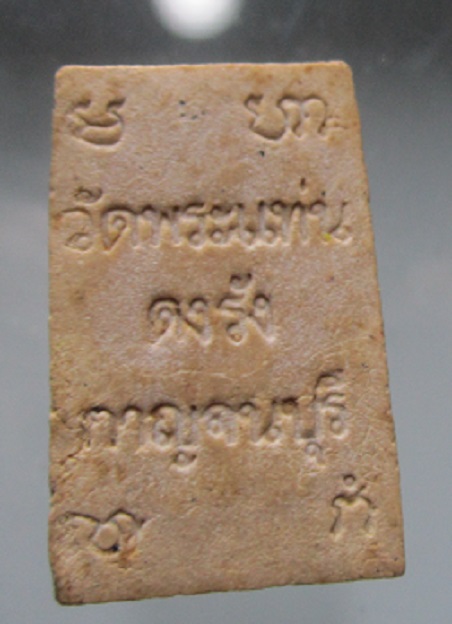 วัดพระแท่น
ดงรัง
กาญจนบุรี